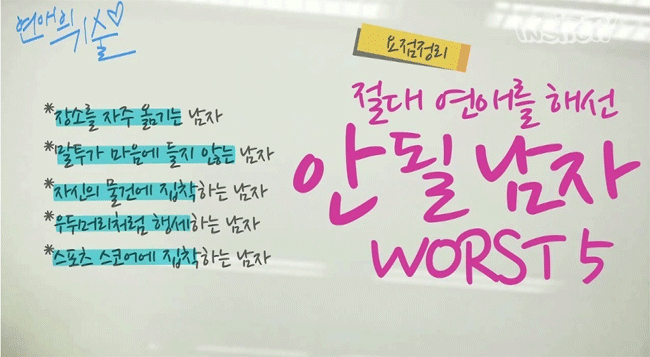 연애의 기술
요점정리
절대 연애를 해선
안 될 남자
WORST 5
*장소를 자주 옮기는 남자
*말투가 마음에 들지 않는 남자
*자신의 물건에 집착하는 남자
*우두머리처럼 행세하는 남자
*스포츠 스코어에 집착하는 남자